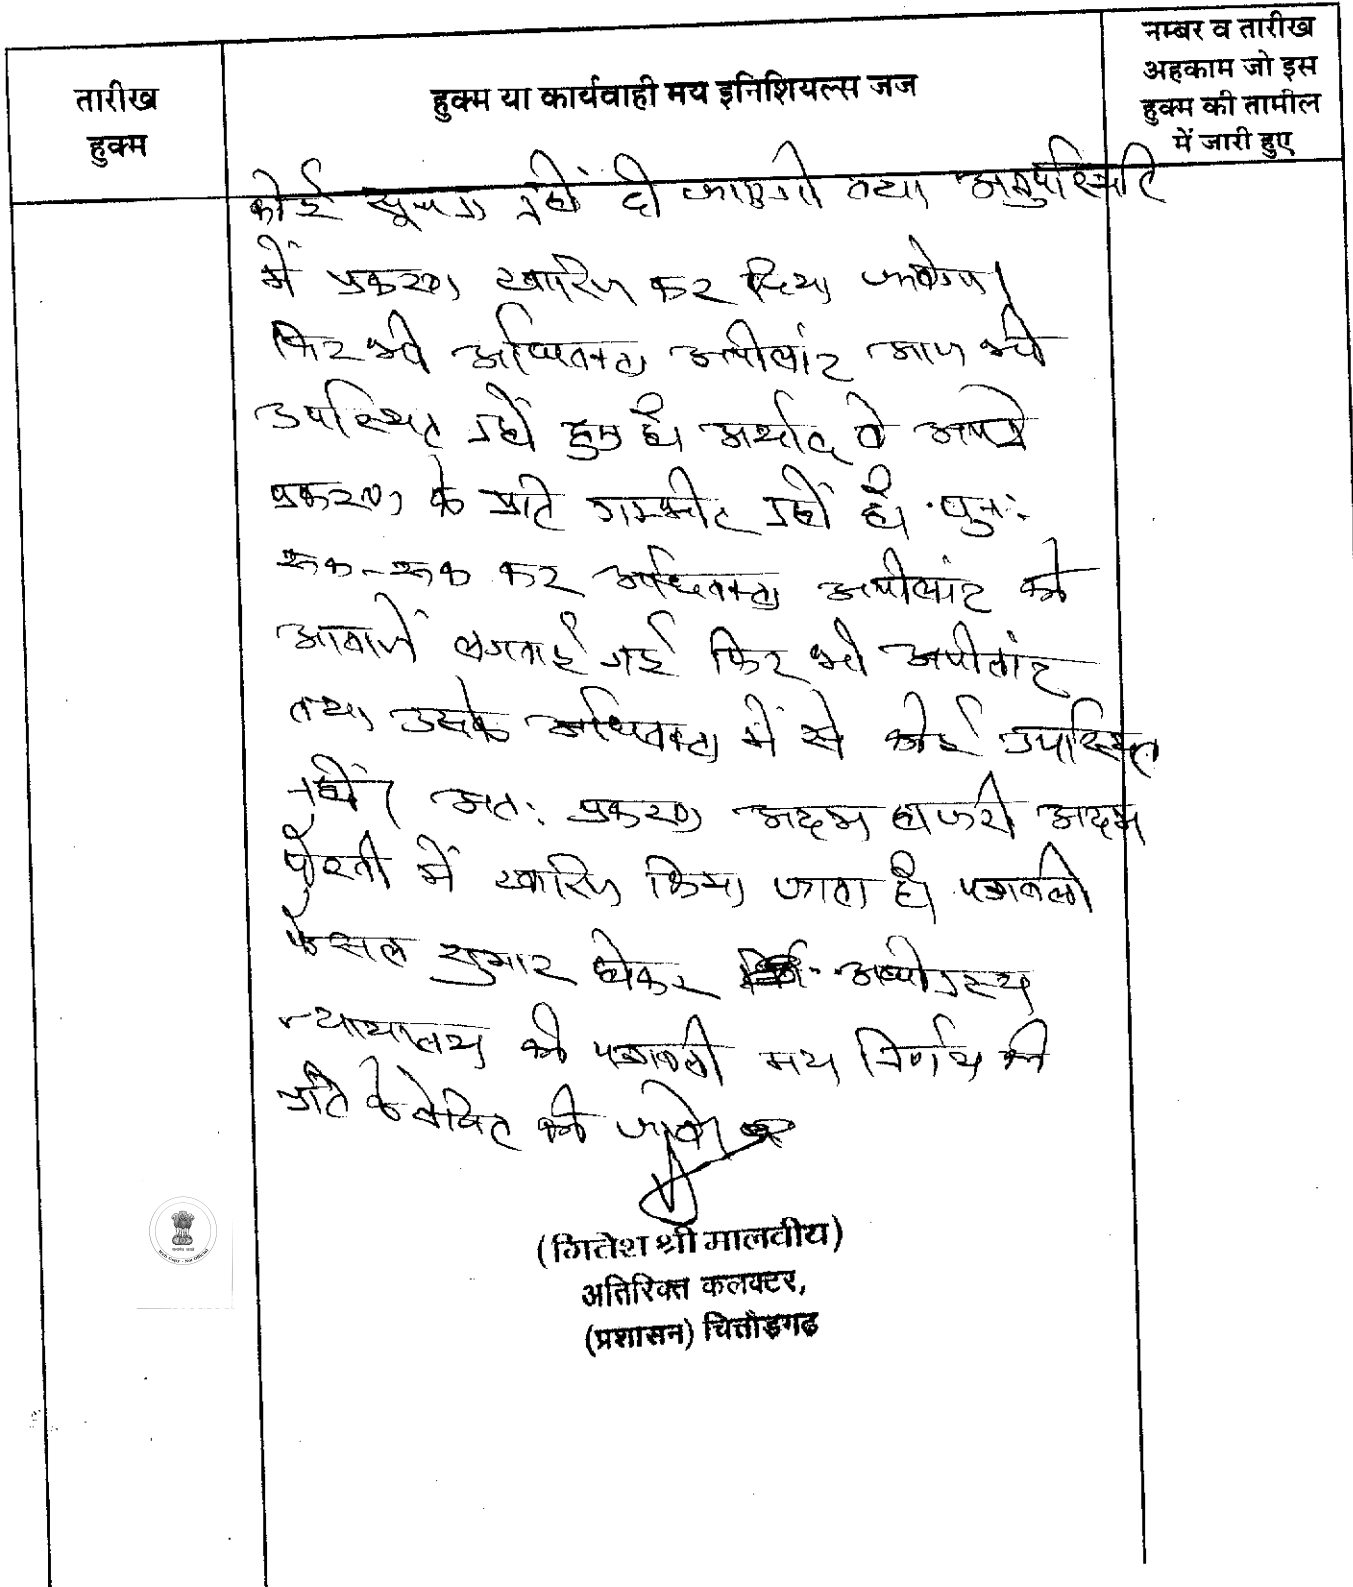 तारीख
हुक्म
हुक्म या कार्यवाही मय इनिशियल्स जज
नम्बर व तारीख
अहकाम जो इस
हुक्म की तामील
में जारी हुए
कोई सूचना नहीं दी जाएगी तथा अनुपस्थिति
में प्रकरण खारिज कर दिया जावेगा।
फिर भी अधिवक्ता अपीलांट आज भी
उपस्थित नहीं हुए है। अर्थात् वे अपने
प्रकरण के प्रति गम्भीर नहीं है। पुनः
रूक-रूक कर अधिवक्ता अपीलांट को
आवाजें लगवाई गई फिर भी अपीलांट
तथा उसके अधिवक्ता में से कोई उपस्थित
नहीं। अतः प्रकरण अदम हाजरी अदम
पैरवी में खारिज किया जाता है। पत्रावली
फैसल शुमार होकर अधीनस्थ
न्यायालय की पत्रावली मय निर्णय की
प्रति के प्रेषित की जावे।
(गितेश श्री मालवीय)
अतिरिक्त कलक्टर,
(प्रशासन) चित्तौड़गढ़
Web Copy - Not Official